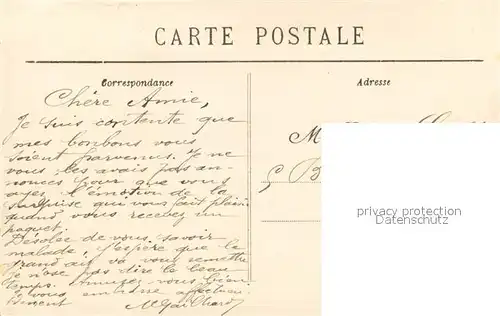 CARTE POSTALE
Correspondance
Adresse
Chère Amie,
Je suis contente que
mes bonbons vous
soient parvenus. Je ne
vous les avais pas an-
noncés pour que vous
ayez l'émotion de la
surprise qui vous fait plaisir
quand vous recevez un
paquet.
Désolée de vous savoir
malade. J'espère que le
grand air va vous remettre
je n'ose pas dire le beau
temps. Amusez vous bien.
Je vous embrasse affectueu-
sement
M
privacy protection
Datenschutz